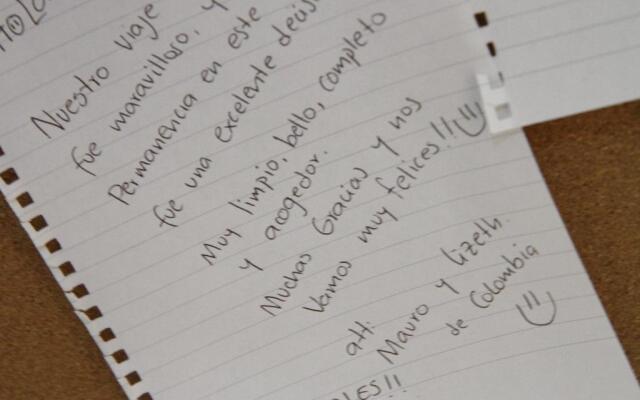 Nuestro viaje
fue maravilloso, y
Permanencia en este
fue una excelente decis
Muy limpio, bello, completo
y acogedor.
Muchas Gracias y nos
Vamos muy felices!! =)
att:
Mauro y Lizeth.
de Colombia
=)
LES!!